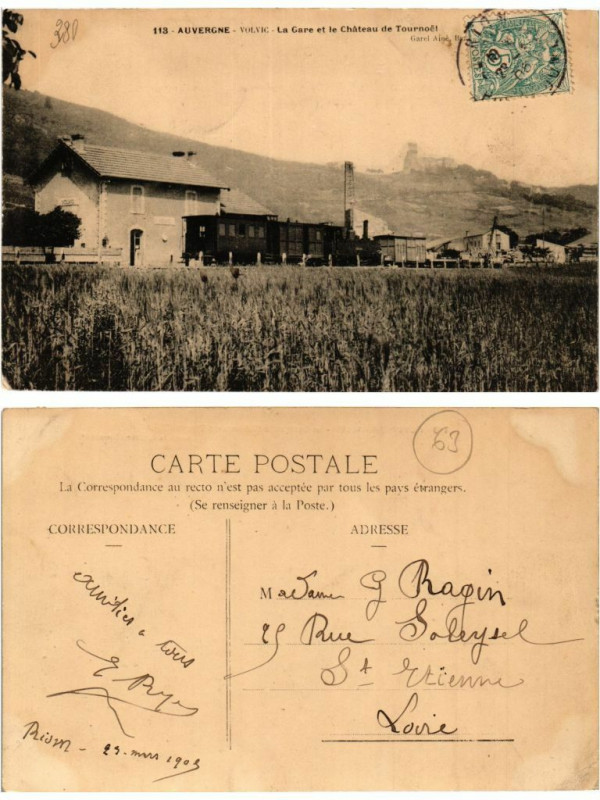 380
113 - AUVERGNE - VOLVIC - La Gare et le Château de Tournoël
RIOM
63
CARTE POSTALE
La Correspondance au recto n'est pas acceptée par tous les pays étrangers.
(Se renseigner à la Poste.)
CORRESPONDANCE
amitiés a tous
Riom - 23 - mars 1905
ADRESSE
Madame G Ragin
25 Rue Soleysel
St Etienne
Loire